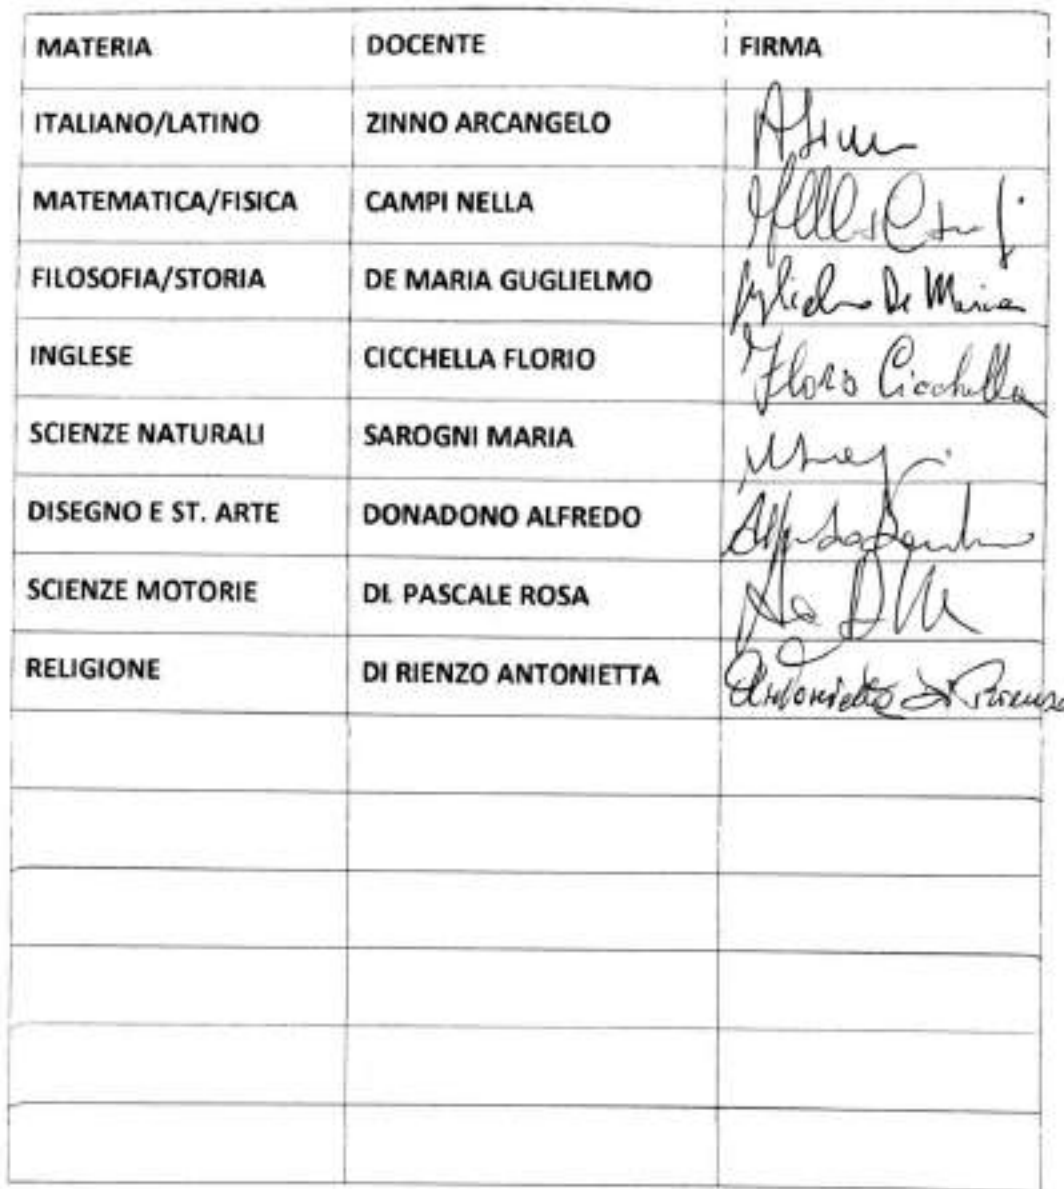 MATERIA DOCENTE FIRMA
ITALIANO/LATINO ZINNO ARCANGELO
MATEMATICA/FISICA CAMPI NELLA
FILOSOFIA/STORIA DE MARIA GUGLIELMO De Maria
INGLESE CICCHELLA FLORIO Florio Cicchella
SCIENZE NATURALI SAROGNI MARIA
DISEGNO E ST. ARTE DONADONO ALFREDO
SCIENZE MOTORIE DI. PASCALE ROSA
RELIGIONE DI RIENZO ANTONIETTA Antonietta Di Rienzo